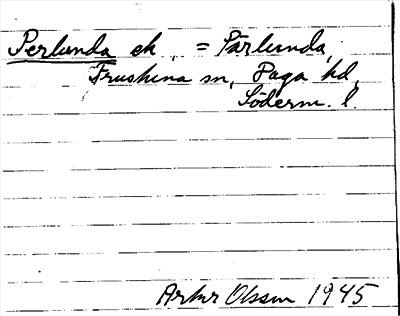 Perlunda ek, = Pärlunda,
Frushina sn, Daga hd,
Söderm. l.
Artur Olsson 1945